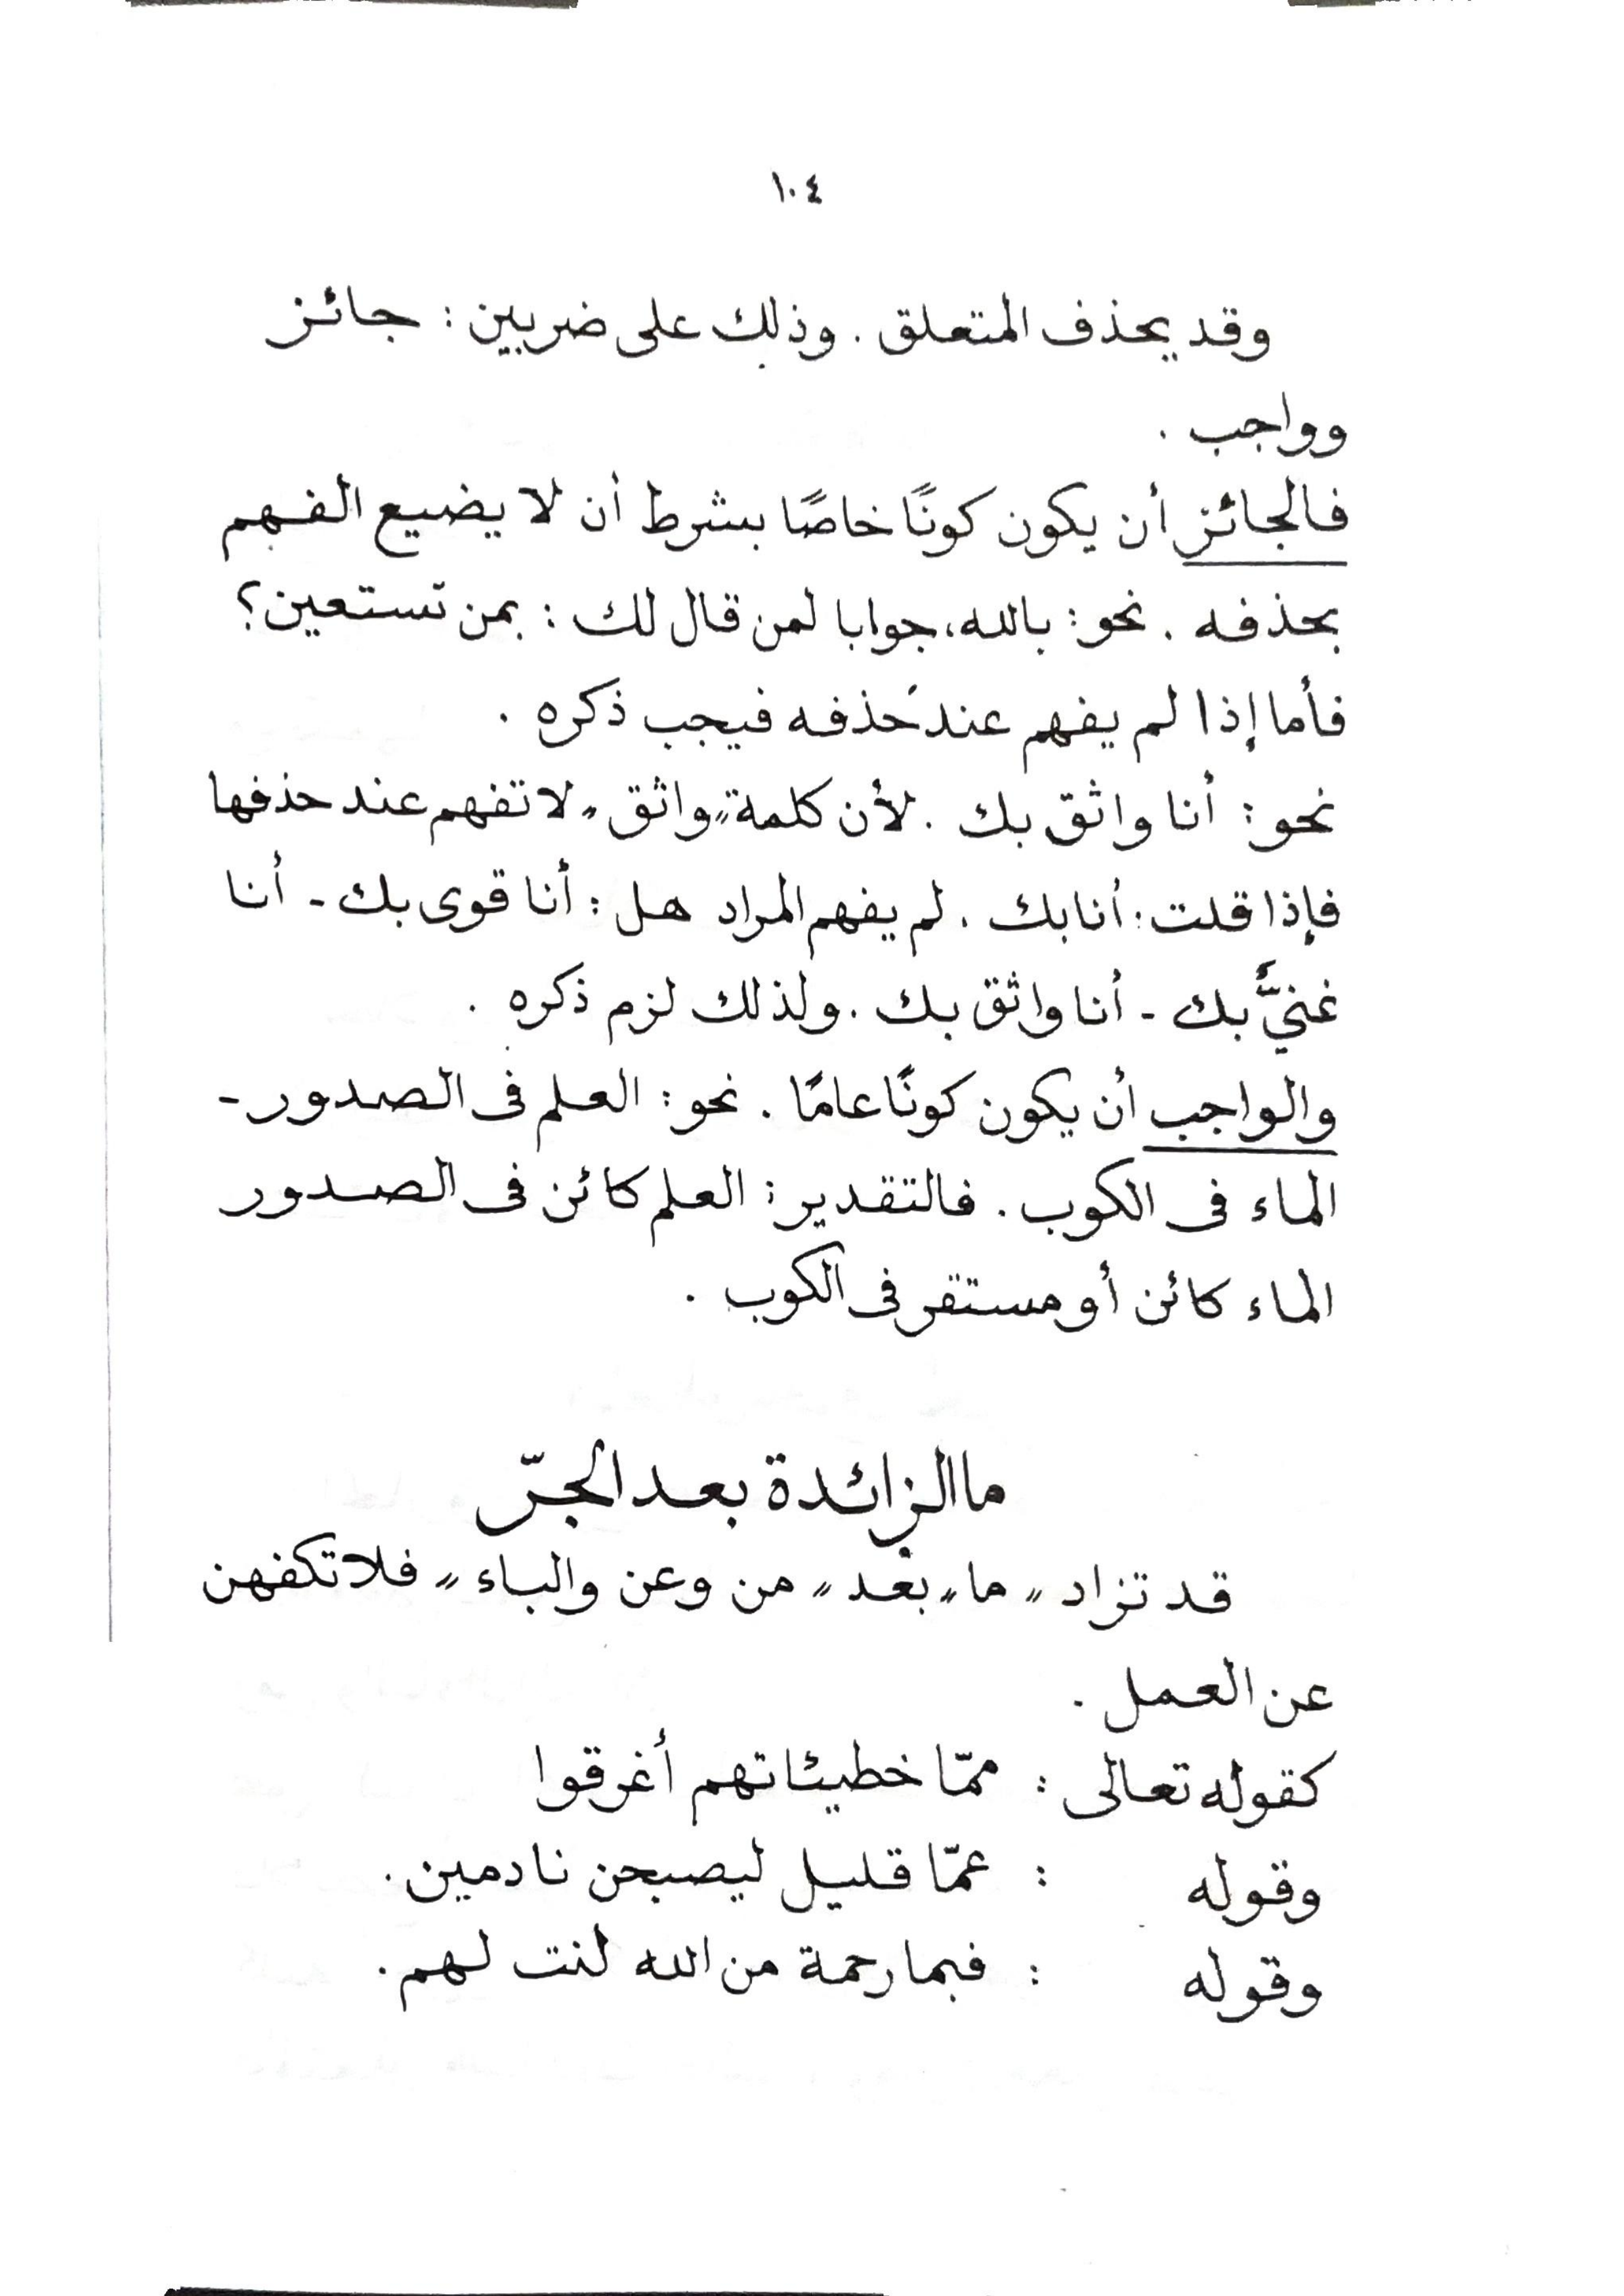 ١٠٤
وقد يحذف المتعلق . وذلك على ضربين : جائز
وواجب .
فالجائز أن يكون كونًا خاصًا بشرط أن لا يضيع الفهم
بحذفه . نحو : بالله ، جوابا لمن قال لك : بمن تستعين ؟
فأما إذا لم يفهم عند حُذفه فيجب ذكره .
نحو : أنا واثق بك . لأن كلمة " واثق " لا تفهم عند حذفها
فإذا قلت : أنا بك . لم يفهم المراد هل : أنا قوى بك - أنا
غنيٌّ بك - أنا واثق بك . ولذلك لزم ذكره .
والواجب أن يكون كونًا عامًا . نحو : العلم فى الصدور -
الماء فى الكوب . فالتقدير : العلم كائن فى الصدور
الماء كائن أو مستقر فى الكوب .
ما الزائدة بعد الجرّ
قد تزاد " ما " بعد " من وعن والباء " فلا تكفهن
عن العمل .
كقوله تعالى : ممّا خطيئاتهم أغرقوا
وقوله : عمّا قليل ليصبحن نادمين .
وقوله : فبما رحمة من الله لنت لهم .